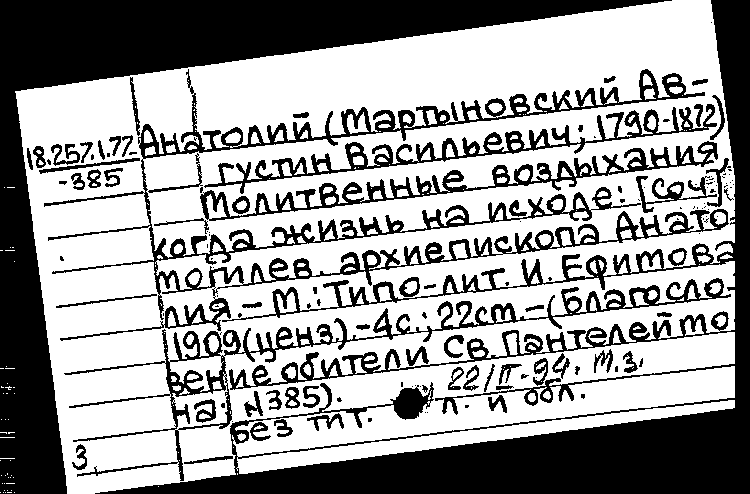 18.257.1.77
-385
Анатолий (Мартыновский Ав-
густин Васильевич; 1790-1872)
Молитвенные воздыхания,
когда жизнь на исходе: [Соч.]
могилев. архиепископа Анато-
лия. – М.: Типо-лит. И. Ефимова
1909 (ценз). – 4с.; 22cm. – (Благосло-
вение обители Св. Пантелеймо-
на; №385).
22/II-94. М.З.
без тит. л. и обл.
3.